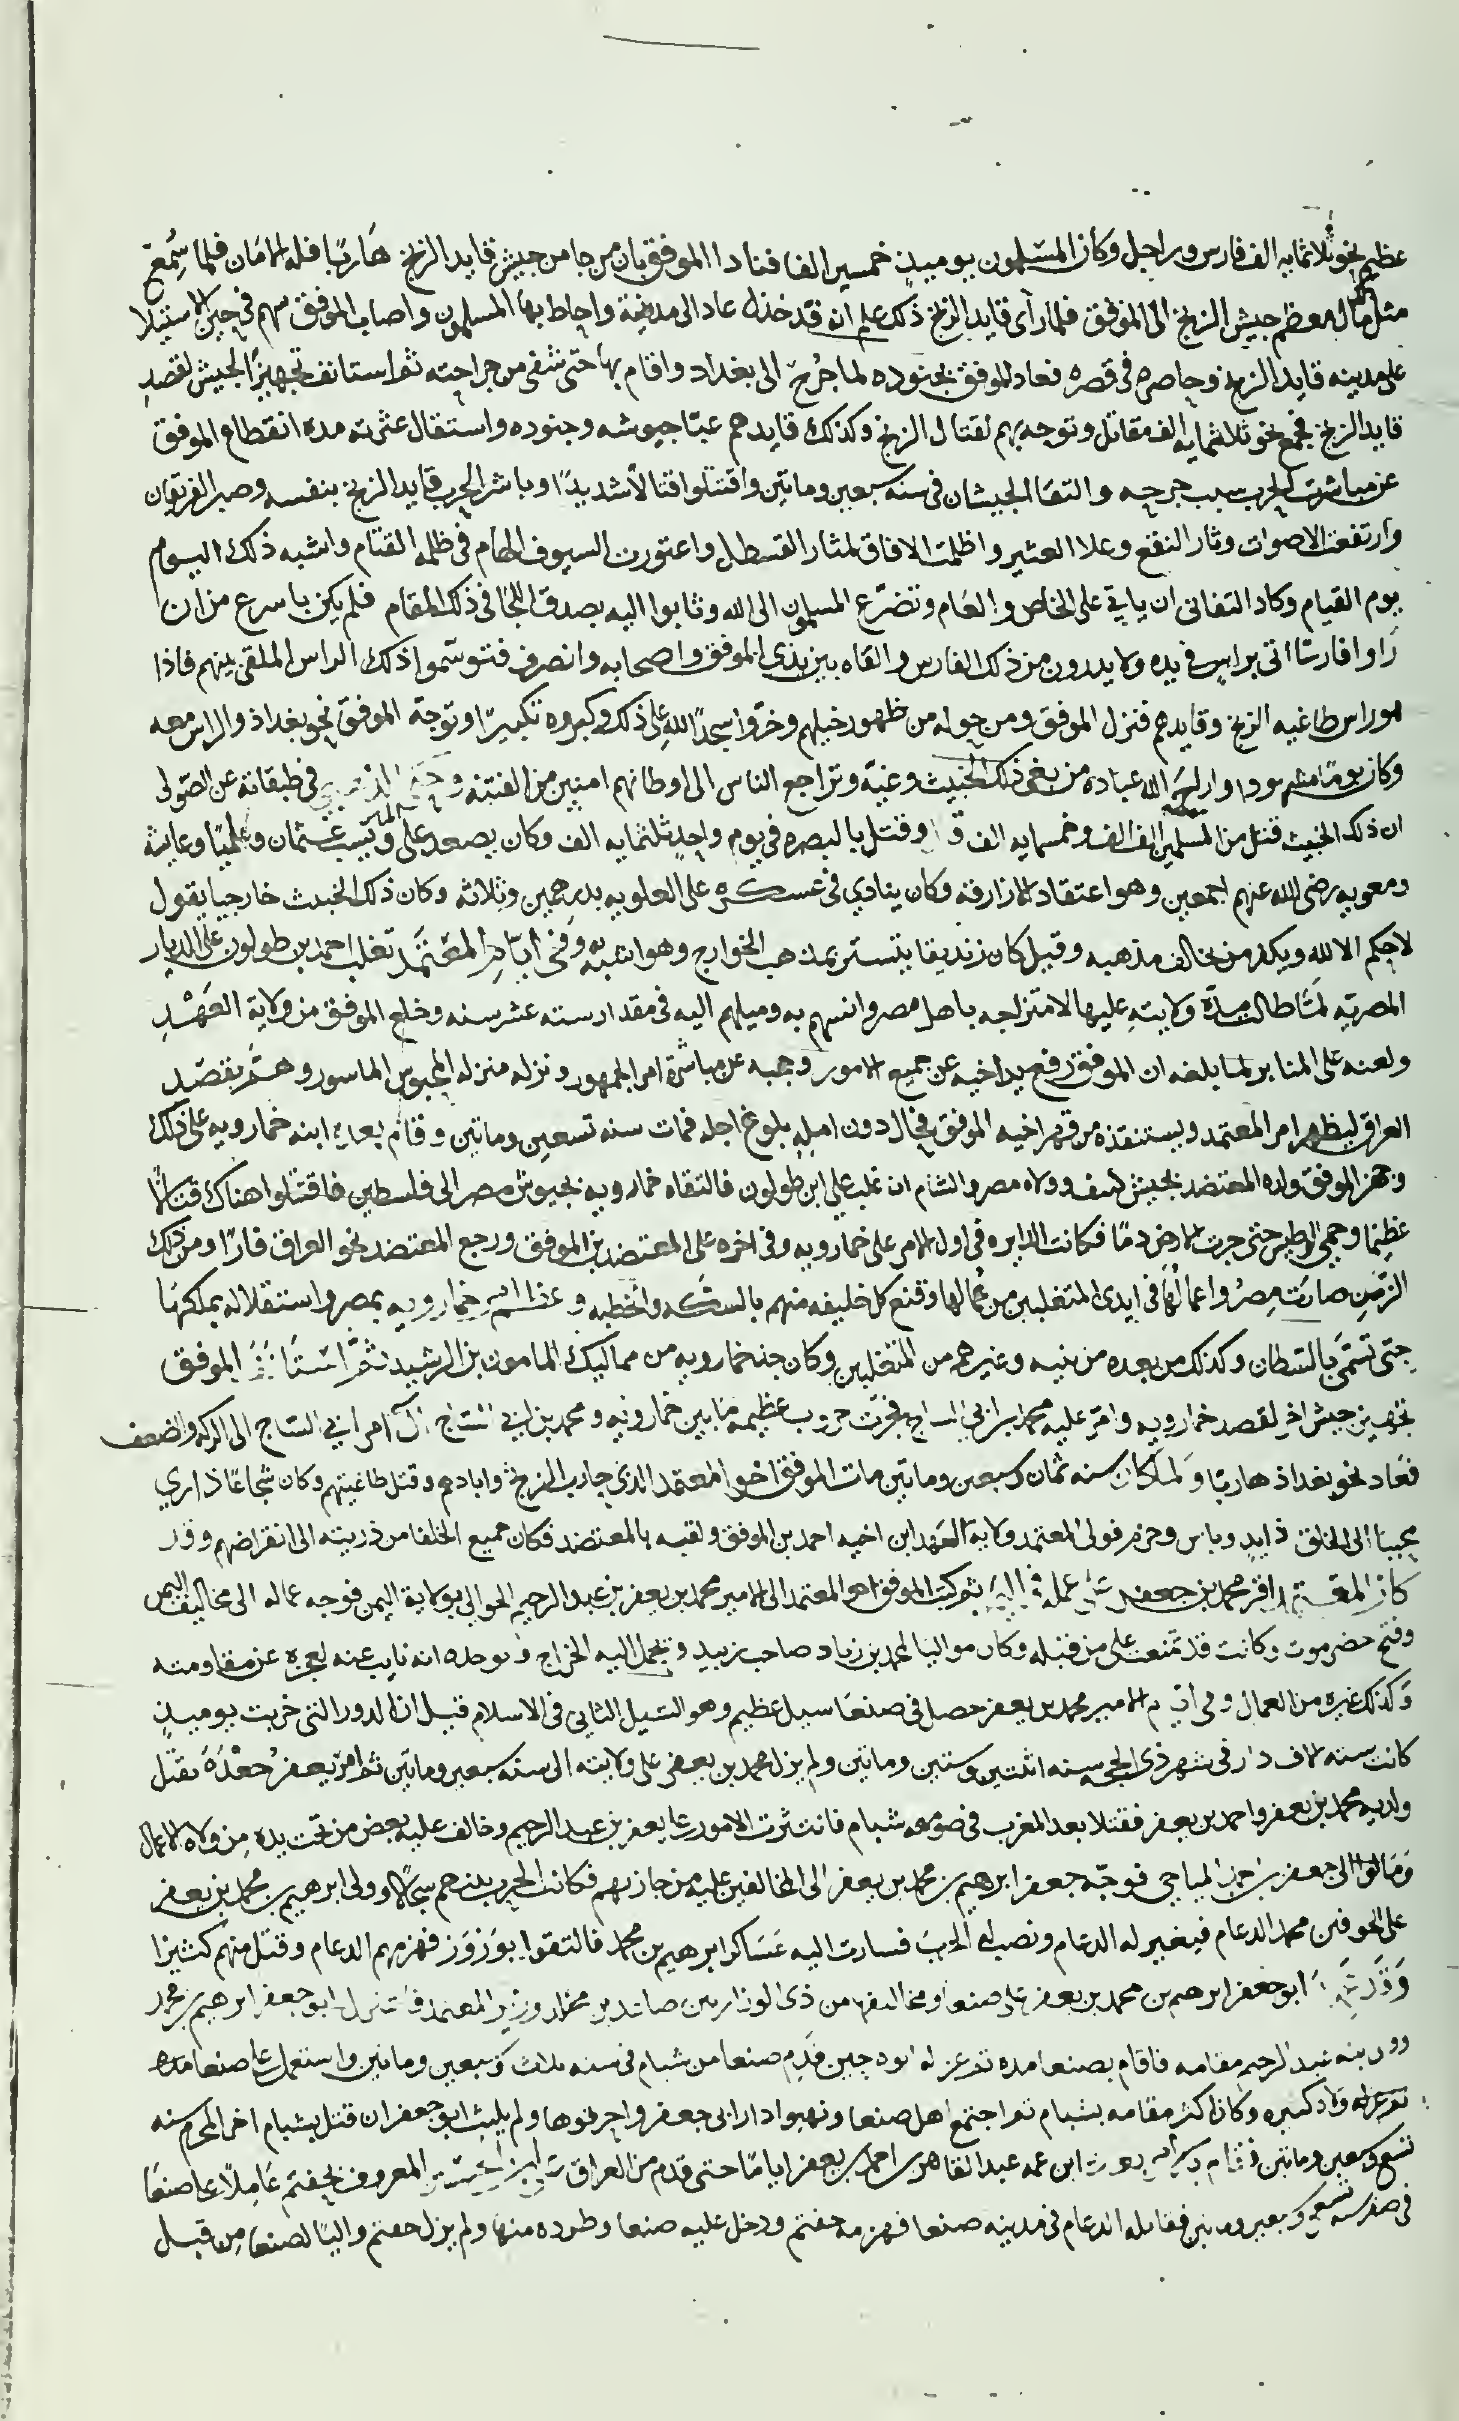 عظيم نحو ثلاثمايه الف فارس وراجل وكان المسلمون يوميذ خمسين الفا فنادا الموفق بان من جا من جيش قايد الزنج هاربا فله الامان فلما سُمع
مثل مال معظم جيش الزنج الى الموفق فلما رأى قايد الزنج ذلك علم انه قد خذل عاد الى مدينة واحاط بها المسلمون واصاب الموفق سهم في حين الاستيلا
على مدينه قايد الزنج وحاصره في قصره فعاد الموفق بجنوده لما جُرح الى بغداد واقام بها حتى شفى من جراحته ثم استانف تجهيز الجيش لقصد
قايد الزنج فجمع نحو ثلاثمايه الف مقاتل وتوجه بهم لقتال الزنج وكذلك قايدهم عبّا جيوشه وجنوده واستقال عثرته مدة انقطاع الموفق
عن مباشرت الحرب بسبب جرحه والتقا الجيشان في سنه سبعين وماتين واقتتلوا قتالا شديدًا وباشر الحرب قايد الزنج بنفسه وصبر الفريقان
وارتفعت الاصوات وثار النقع وعلا العثير واظلمت الافاق لمثار القسطل واعتورت السيوف الهام في ظلمه القتام واشبه ذلك اليوم
يوم القيام وكاد التفانى ان ياتي على الخاص والعام وتضرّع المسلمون الى الله وثابوا اليه بصدق اللجا في ذلك المقام فلم يكن باسرع من ان
راوا فارسًا اتى براس في يده ولا يدرون من ذلك الفارس والقاه بين يدي الموفق واصحابه وانصرف فتوسموا ذلك الراس الملقى بينهم فاذا
هو راس طاغيه الزنج وقايدهم فنزل الموفق ومن حوله من ظهور خيلهم وخرّوا سجدًا لله على ذلك وكبروه تكبيرًا وتوجه الموفق نحو بغداد والراس معه
وكان يومًا مشهودا واراح الله عباده من بغى ذلك الخبيث وغيّه وتراجع الناس الى اوطانهم امنين من الفتنه وحكى الذهبي في طبقاته عن الصولى
ان ذلك الخبيث قتل من المسلمين الف الف وخمسمايه الف وقتل بالبصره في يوم واحد ثلثمايه الف وكان يصعد على المنبر ويسب عثمان وعليا وعايشة
ومعويه رضى الله عنهم اجمعين وهو اعتقاد الازارقه وكان ينادي في عسكره على العلويه بدرهمين وثلاثه وكان ذلك الخبيث خارجيا يقول
لاحكم الا لله ويكفر من خالف مذهبه وقيل كان زنديقا يتستر بمذهب الخوارج وهو اشبه وفي أيّام المعتمد تغلب احمد بن طولون على الديار
المصريه لمّا طالت مدّة ولايته عليها لامتزاجه باهل مصر وانسهم به وميلهم اليه في مقدار سته عشر سنه وخلع الموفق من ولاية العَهْد
ولعنه على المنابر لما بلغه ان الموفق رفع يد اخيه عن جميع الامور وحجبه عن مباشرة امر الجمهور ونزله منزله المحبوس الماسور وهَمّ بقصد
العراق ليظهر امر المعتمد ويستنقذه من قهر اخيه الموفق فحال دون امله بلوغ اجله فمات سنه تسعين وماتين وقام بعده ابنه خمارويه على ذلك
وجهز الموفق ولده المعتضد بجيش كثيف وولاه مصر والشام ان غلب على ابن طولون فالتقاه خمارويه بجيوش مصر الى فلسطين فاقتتلوا هناك قتالا
عظيما وحمي الوطيس حتى جرت الارض دمًا فكانت الدايره في اول الامر على خمارويه وفي اخره على المعتضد بن الموفق ورجع المعتضد نحو العراق فارًا ومن ذلك
الزمن صارت مصرُ واعمالُها في ايدى المتغلبين من عمالها وقنع كل خليفه منهم بالسكّه والخطبه وعظم امر خمارويه بمصر واستقلاله بملكها
حتى تسمى بالسّلطان وكذلك من بعده من بنيه وغيرهم من المتغلبين وكان جد خمارويه من مماليك المامون بن الرشيد ثمّ استانف الموفق
تجهيز جيش اخر لقصد خمارويه وامّر عليه محمد بن ابي الساج فجرَت حروب عظيمه ما بين خمارويه ومحمد بن ابي الساج آل امر ابي الساج الى الركه والضعف
فعاد نحو بغداد هاربًا ولما كان سنه ثمان وسبعين وماتين مات الموفق اخو المعتمد الذي حارب الزنج وابادهم وقتل طاغيتهم وكان شجاعًا ذا راي
محببا الى الخلق ذا ايد وباس وحزم فولى المعتمد ولاية العهد ابن اخيه احمد بن الموفق ولقبه بالمعتضد فكان جميع الخلفا من ذريته الى انقراضهم وقد
كان المعتمد اقر محمد بن جعفر على عمله في اليمن ثم كتب الموفق اخو المعتمد الى الامير محمد بن يعفر بن عبد الرحيم الحوالي بولاية اليمن فوجه عماله الى مخاليف اليمن
وفتح حضرموت وكانت قد تمنعت على من قبله وكان مواليا لمحمد بن زياد صاحب زبيد ويحمل اليه الخراج ويوحده انه نايب عنه لعجزه عن مقاومته
وكذلك غيره من العمال وفي ايام الامير محمد بن يعفر حصل في صنعا سيل عظيم وهو السّيل الثاني في الاسلام قيل ان الدور التي خربت يوميذ
كانت سته الاف دار في شهر ذي الحجه سنه اثنتين وستين وماتين ولم يزل محمد بن يعفر على ولايته الى سنه سبعين وماتين ثم امر يعفرُ جعفرًا بقتل
ولديه محمد بن يعفر واحمد بن يعفر فقتلا بعد المغرب في صومعه شبام فانتثرت الامور على يعفر بن عبد الرحيم وخالف عليه بعض من تحت يده من ولاه الاعمال
ومالوا الى جعفر بن احمد المناخي فوجّه جعفر ابرهيم بن محمد بن يعفر الى المخالفين عليه فحاربهم فكانت الحرب بينهم سجالا وولى ابرهيم بن محمد بن يعفر
على الجوفين محمد الدعام فتغير له الدعام ونصب له الحرب فسارت اليه عساكر ابرهيم بن محمد فالتقوا بوَرْوَر فهزمهم الدعام وقتل منهم كثيرا
وقدم ابو جعفر ابرهيم بن محمد بن يعفر على صنعا ومخاليفها من ذى الوزارتين صاعد بن مخلد وزير المعتمد فاعتزل ابو جعفر ابرهيم بن محمد
وولى ابنه عبد الرحيم مقامه فاقام بصنعا مده ثم عزله ابوه حين قدم صنعا من شبام في سنه ثلاث وسبعين وماتين واستعمل على صنعا مده
ثم عزله وكان اكثر مقامه بشبام ثم اجتمع اهل صنعا ونهبوا دار ابي جعفر واحرقوها ولم يلبث ابو جعفر ان قتل بشبام اخر المحرم سنه
تسع وسبعين وماتين فقام ابن عمه عبد القاهر بن احمد بن يعفر اياما حتى قدم من العراق علي بن الحسين المعروف بجفتم عاملًا على صنعا
في صفر سنه تسع وسبعين وماتين فقابله الدعام في مدينه صنعا فهزمه جفتم ودخل عليه صنعا وطرده منها ولم يزل جفتم واليًا لصنعا من قبل